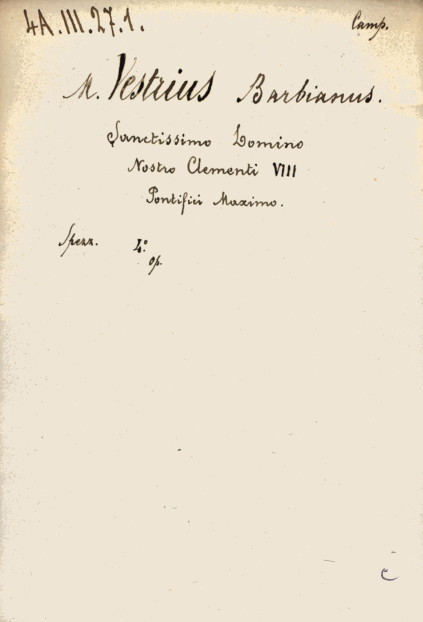 4A.III.27.1. Camp.
M. Vestrius Barbianus.
Sanctissimo Domino
Nostro Clementi VIII
Pontifici Maximo.
4º
op.
c